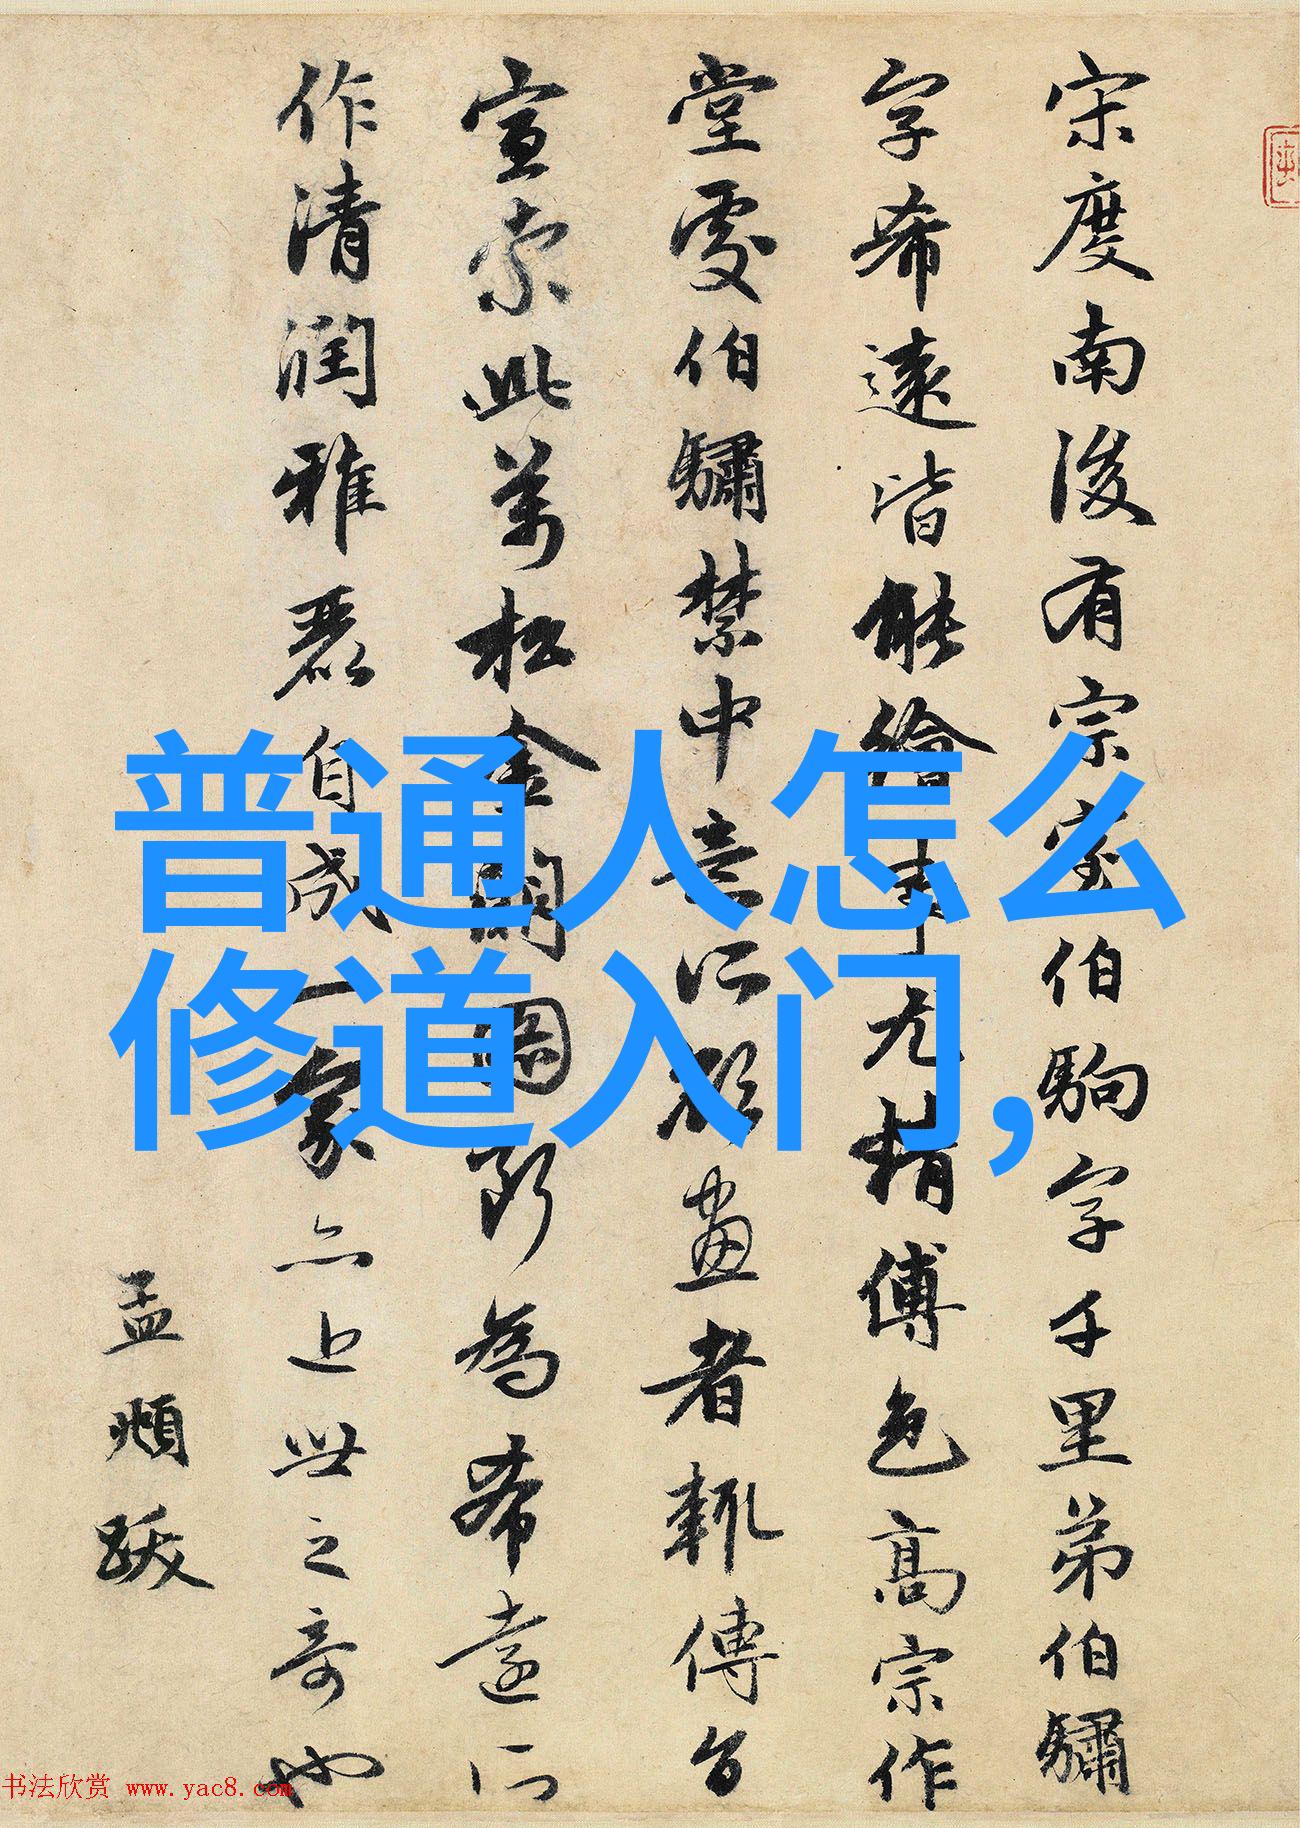 宋度南後有宗室伯駒字千里弟伯驌
字希遠皆能繪事尤精傅色高宗作
堂處伯驌禁中意所欲畫者輒傳旨
宣索此萬松金闕圖斷為希遠所
作清潤雅麗自成一家亦近世之奇也
孟頫跋
普通人怎么
修道入门,
书法欣赏 www.yac8.com